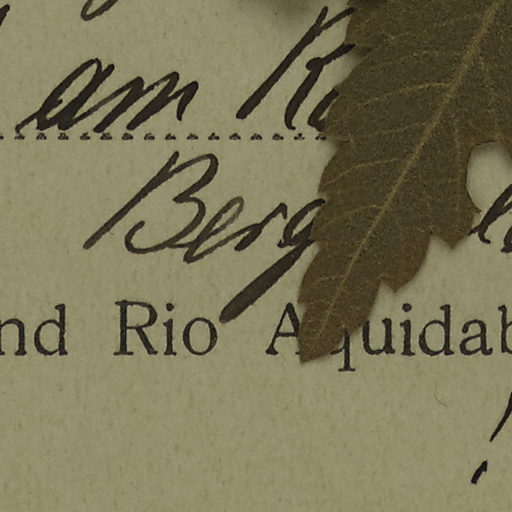 am
Berg
nd Rio Aquidab